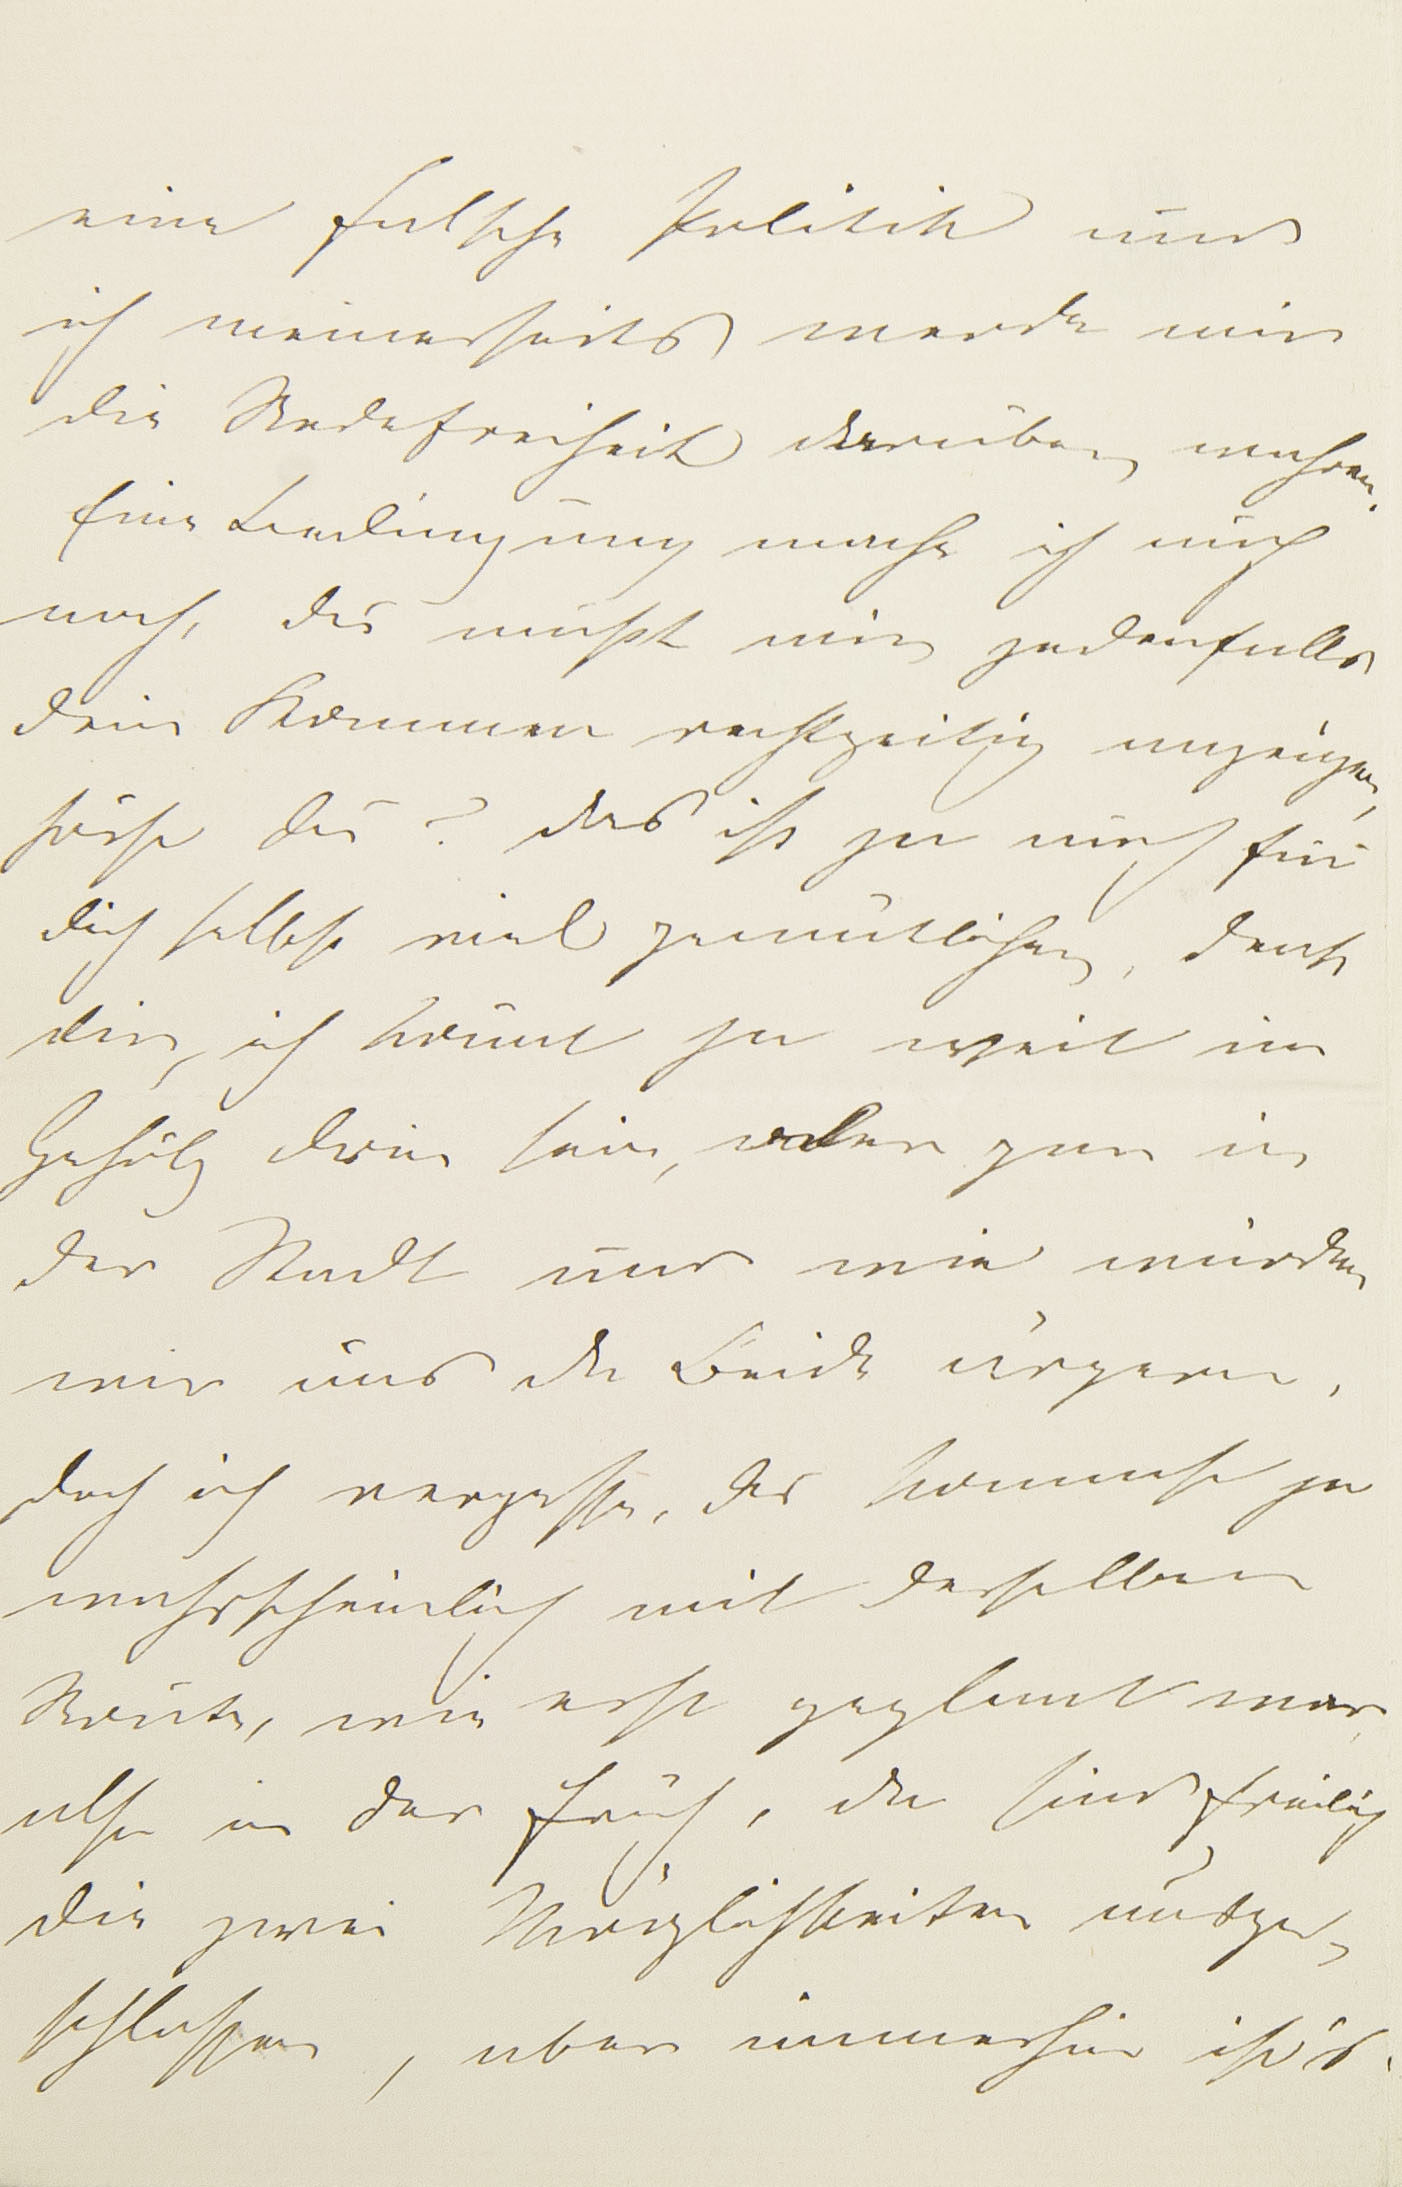 eine falsche Politik und
ich meinerseits werde mir
die Redefreiheit darüber wahren.
Eine Bedingung mache ich auch
noch, du mußt mir jedenfalls
dein Kommen rechtzeitig anzeigen,
hörst du? das ist ja auch für
dich selbst viel gemütlicher, denk
dir, ich könnt ja weit im
Gehölz drin sein, oder gar in
der Stadt und wie würden
wir uns da Beide ärgern,
doch ich vergesse, du kommst ja
wahrscheinlich mit derselben
Route, wie erst geplant war
also in der Früh, da sind freilich
die zwei Möglichkeiten ausge-
schlossen, aber immerhin ist's